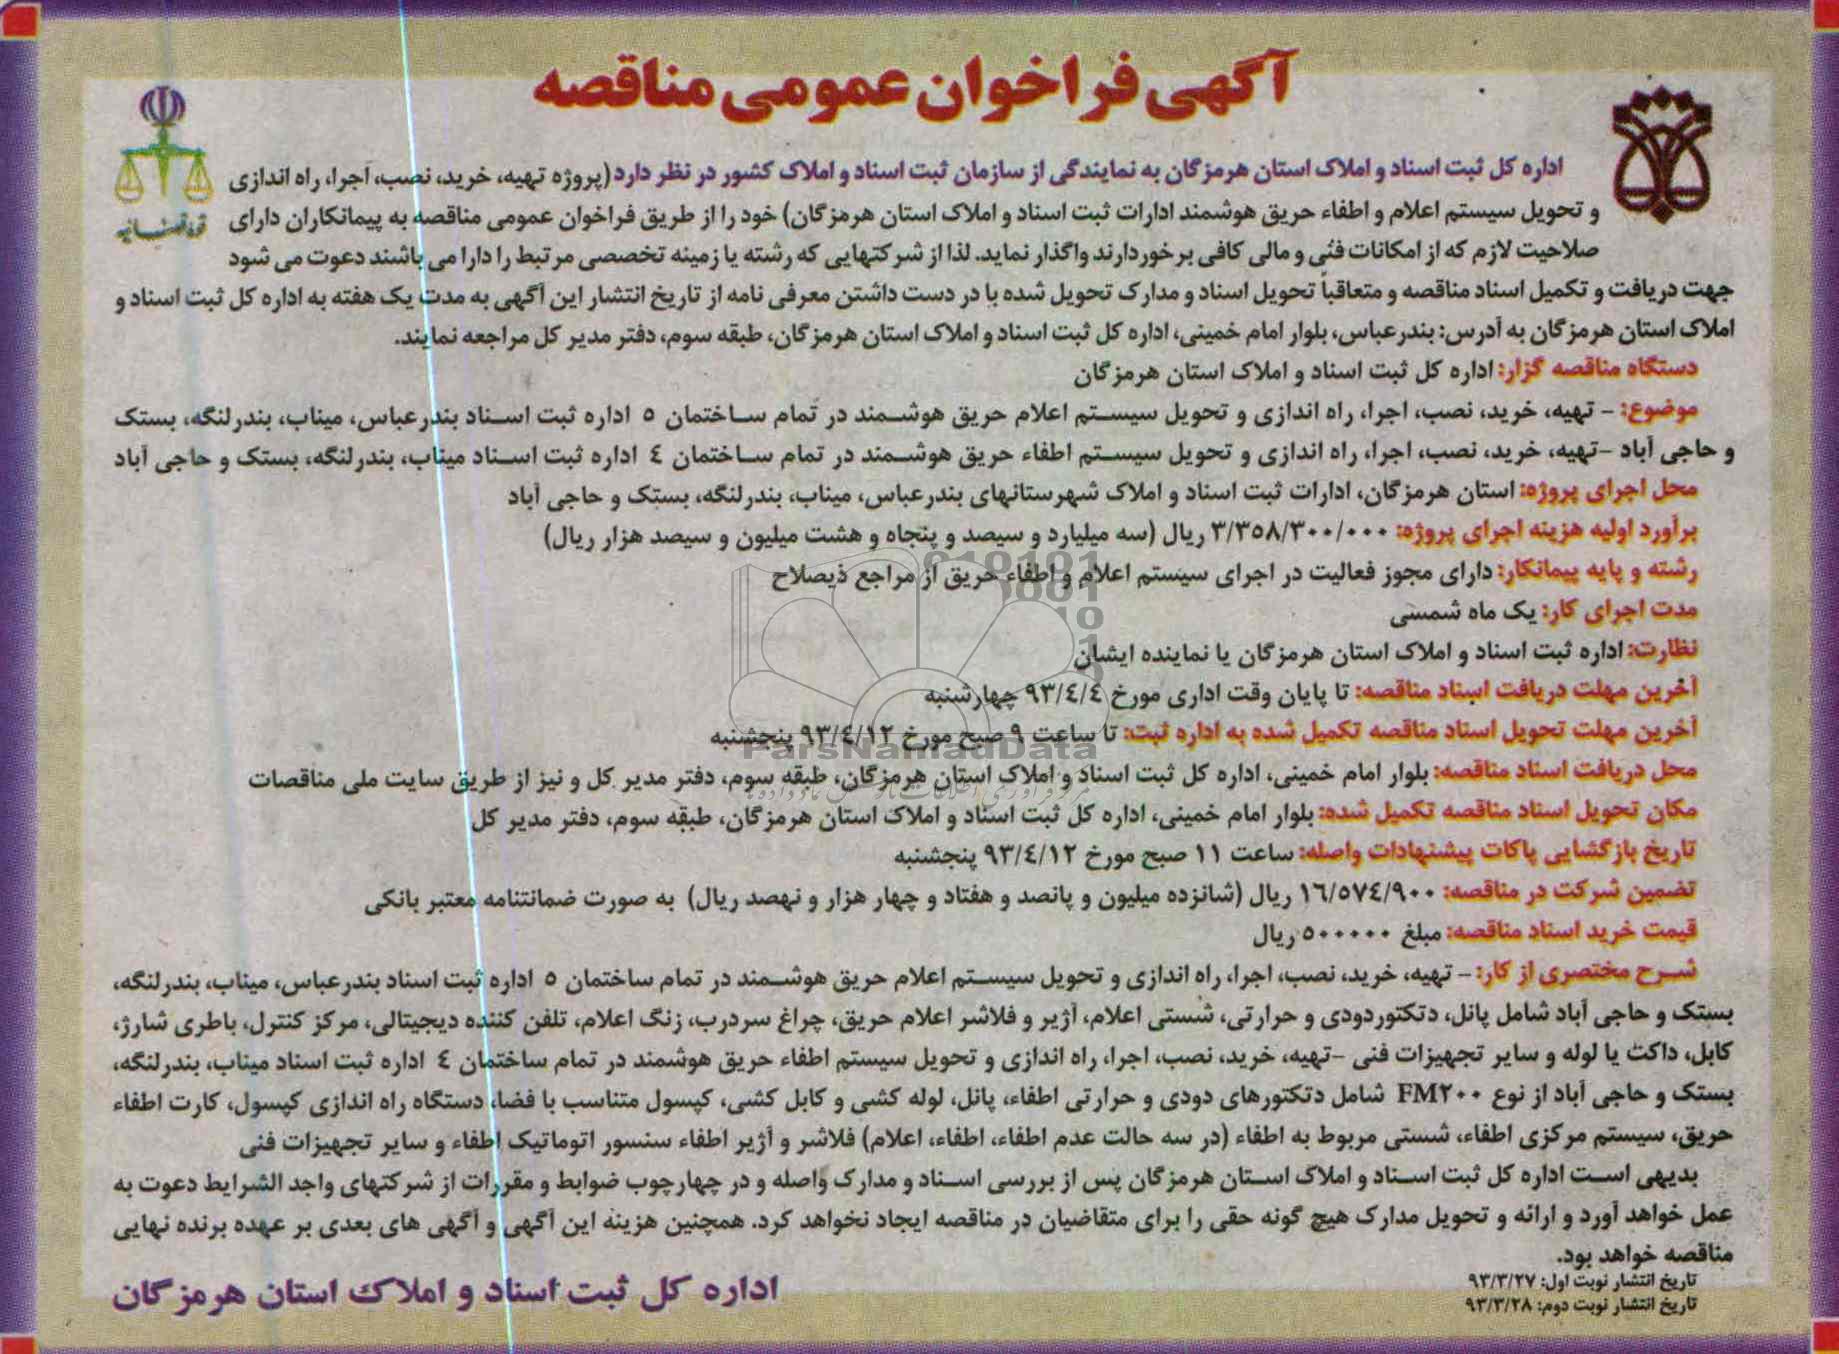 آگهی فراخوان عمومی مناقصه
قوه قضائیه
اداره کل ثبت اسناد و املاک استان هرمزگان به نمایندگی از سازمان ثبت اسناد و املاک کشور در نظر دارد (پروژه تهیه، خرید، نصب، اجرا، راه اندازی
و تحویل سیستم اعلام و اطفاء حریق هوشمند ادارات ثبت اسناد و املاک استان هرمزگان) خود را از طریق فراخوان عمومی مناقصه به پیمانکاران دارای
صلاحیت لازم که از امکانات فنی و مالی کافی برخوردارند واگذار نماید. لذا از شرکتهایی که رشته یا زمینه تخصصی مرتبط را دارا می باشند دعوت می شود
جهت دریافت و تکمیل اسناد مناقصه و متعاقباً تحویل اسناد و مدارک تحویل شده با در دست داشتن معرفی نامه از تاریخ انتشار این آگهی به مدت یک هفته به اداره کل ثبت اسناد و
املاک استان هرمزگان به آدرس: بندرعباس، بلوار امام خمینی، اداره کل ثبت اسناد و املاک استان هرمزگان، طبقه سوم، دفتر مدیر کل مراجعه نمایند.
دستگاه مناقصه گزار: اداره کل ثبت اسناد و املاک استان هرمزگان
موضوع: - تهیه، خرید، نصب، اجرا، راه اندازی و تحویل سیستم اعلام حریق هوشمند در تمام ساختمان ٥ اداره ثبت اسناد بندرعباس، میناب، بندرلنگه، بستک
و حاجی آباد -تهیه، خرید، نصب، اجرا، راه اندازی و تحویل سیستم اطفاء حریق هوشمند در تمام ساختمان ٤ اداره ثبت اسناد میناب، بندرلنگه، بستک و حاجی آباد
محل اجرای پروژه: استان هرمزگان، ادارات ثبت اسناد و املاک شهرستانهای بندرعباس، میناب، بندرلنگه، بستک و حاجی آباد
برآورد اولیه هزینه اجرای پروژه: ٣/٣٥٨/٣٠٠/٠٠٠ ریال (سه میلیارد و سیصد و پنجاه و هشت میلیون و سیصد هزار ریال)
رشته و پایه پیمانکار: دارای مجوز فعالیت در اجرای سیستم اعلام و اطفاء حریق از مراجع ذیصلاح
مدت اجرای کار: یک ماه شمسی
نظارت: اداره ثبت اسناد و املاک استان هرمزگان یا نماینده ایشان
آخرین مهلت دریافت اسناد مناقصه: تا پایان وقت اداری مورخ ٩٣/٤/٤ چهارشنبه
آخرین مهلت تحویل اسناد مناقصه تکمیل شده به اداره ثبت: تا ساعت ٩ صبح مورخ ٩٣/٤/١٢ پنجشنبه
ParsNamadData
محل دریافت اسناد مناقصه: بلوار امام خمینی، اداره کل ثبت اسناد و املاک استان هرمزگان، طبقه سوم، دفتر مدیر کل و نیز از طریق سایت ملی مناقصات
مکان تحویل اسناد مناقصه تکمیل شده: بلوار امام خمینی، اداره کل ثبت اسناد و املاک استان هرمزگان، طبقه سوم، دفتر مدیر کل
تاریخ بازگشایی پاکات پیشنهادات واصله: ساعت ١١ صبح مورخ ٩٣/٤/١٢ پنجشنبه
تضمین شرکت در مناقصه: ١٦/٥٧٤/٩٠٠ ریال (شانزده میلیون و پانصد و هفتاد و چهار هزار و نهصد ریال) به صورت ضمانتنامه معتبر بانکی
قیمت خرید اسناد مناقصه: مبلغ ٥٠٠٠٠٠ ریال
شرح مختصری از کار: - تهیه، خرید، نصب، اجرا، راه اندازی و تحویل سیستم اعلام حریق هوشمند در تمام ساختمان ٥ اداره ثبت اسناد بندرعباس، میناب، بندرلنگه،
بستک و حاجی آباد شامل پانل، دتکتوردودی و حرارتی، شستی اعلام، آژیر و فلاشر اعلام حریق، چراغ سردرب، زنگ اعلام، تلفن کننده دیجیتالی، مرکز کنترل، باطری شارژ،
کابل، داکت یا لوله و سایر تجهیزات فنی -تهیه، خرید، نصب، اجرا، راه اندازی و تحویل سیستم اطفاء حریق هوشمند در تمام ساختمان ٤ اداره ثبت اسناد میناب، بندرلنگه،
بستک و حاجی آباد از نوع FM٢٠٠ شامل دتکتورهای دودی و حرارتی اطفاء، پانل، لوله کشی و کابل کشی، کپسول متناسب با فضا، دستگاه راه اندازی کپسول، کارت اطفاء
حریق، سیستم مرکزی اطفاء، شستی مربوط به اطفاء (در سه حالت عدم اطفاء، اطفاء، اعلام) فلاشر و آژیر اطفاء سنسور اتوماتیک اطفاء و سایر تجهیزات فنی
بدیهی است اداره کل ثبت اسناد و املاک استان هرمزگان پس از بررسی اسناد و مدارک واصله و در چهارچوب ضوابط و مقررات از شرکتهای واجد الشرایط دعوت به
عمل خواهد آورد و ارائه و تحویل مدارک هیچ گونه حقی را برای متقاضیان در مناقصه ایجاد نخواهد کرد. همچنین هزینه این آگهی و آگهی های بعدی بر عهده برنده نهایی
مناقصه خواهد بود.
تاریخ انتشار نوبت اول: ٩٣/٣/٢٧
تاریخ انتشار نوبت دوم: ٩٣/٣/٢٨
اداره کل ثبت اسناد و املاک استان هرمزگان